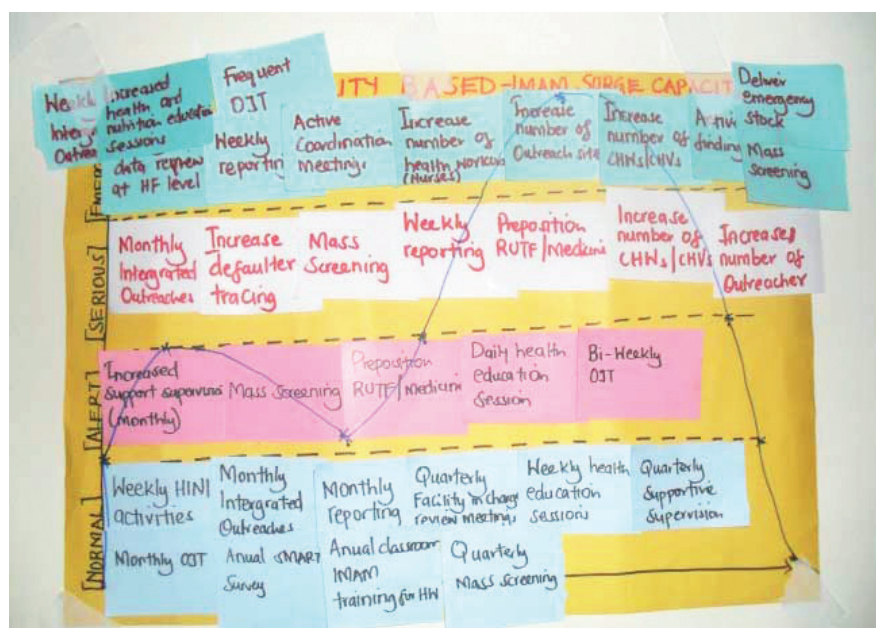 ITY BASED-IMAM SURGE CAPACIT
Weekly
Outreach
Increased
health and
nutrition education
sessions
data review
at HF level
Frequent
OJT
Weekly
reporting
Active
Coordination
meetings
Increase
number of
health workers
(Nurses)
Increase
number of
Outreach site
Increase
number of
CHWs/CHVs
finding
Deliver
emergency
stock
Mass
Screening
[SERIOUS]
Monthly
Intergrated
Outreaches
Increase
defaulter
tracing
Mass
Screening
Weekly
reporting
Preposition
RUTF/Medicine
Increase
number of
CHWs/CHVs
Increases
number of
Outreaches
[ALERT]
Increased
Support supervisi
(Monthly)
Mass Screening
Preposition
RUTF/Medicine
Daily health
education
Session
Bi-Weekly
OJT
[NORMAL]
Weekly HINI
activities
Monthly
Intergrated
Outreaches
Monthly
reporting
Quarterly
Facility in charge
review meetings
Weekly health
education
sessions
Quarterly
Supportive
Supervision
Monthly OJT
Anual SMART
Survey
Anual classroom
IMAM
training for HW
Quarterly
Mass screening